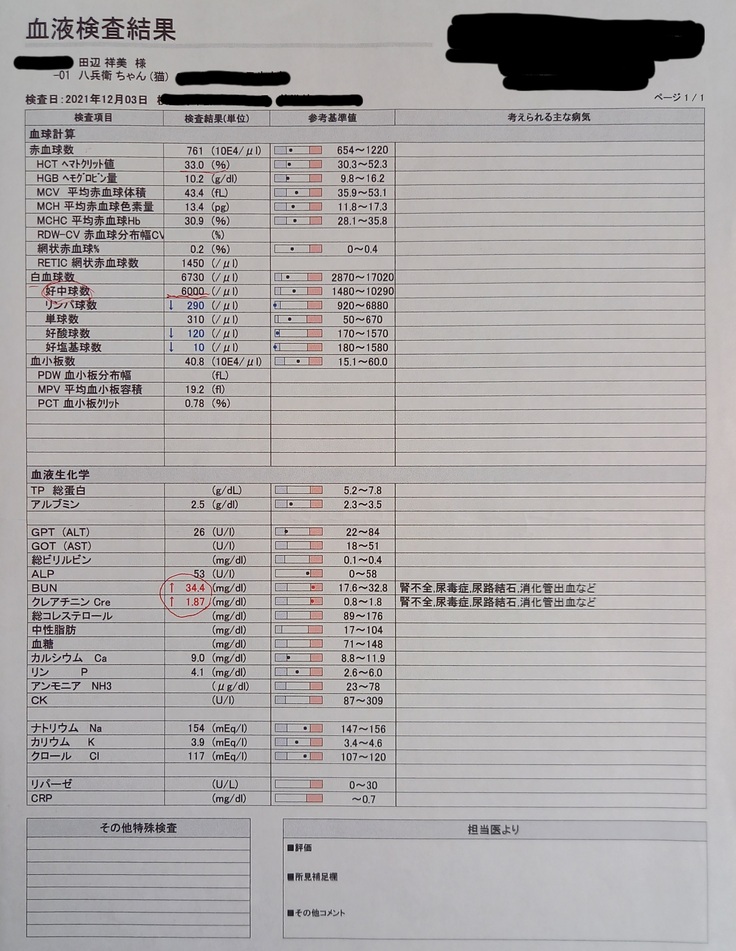 血液検査結果
田辺 祥美 様
-01 八兵衛 ちゃん (猫)
検査日:2021年12月03日
ページ 1 / 1
検査項目 検査結果(単位) 参考基準値 考えられる主な病気
血球計算
赤血球数 761 (10E4/μl) 654～1220
HCT ヘマトクリット値 33.0 (%) 30.3～52.3
HGB ヘモグロビン量 10.2 (g/dl) 9.8～16.2
MCV 平均赤血球体積 43.4 (fL) 35.9～53.1
MCH 平均赤血球色素量 13.4 (pg) 11.8～17.3
MCHC 平均赤血球Hb 30.9 (%) 28.1～35.8
RDW-CV 赤血球分布幅CV (%)
網状赤血球% 0.2 (%) 0～0.4
RETIC 網状赤血球数 1450 (/μl)
白血球数 6730 (/μl) 2870～17020
好中球数 6000 (/μl) 1480～10290
リンパ球数 ↓ 290 (/μl) 920～6880
単球数 310 (/μl) 50～670
好酸球数 ↓ 120 (/μl) 170～1570
好塩基球数 ↓ 10 (/μl) 180～1580
血小板数 40.8 (10E4/μl) 15.1～60.0
PDW 血小板分布幅 (fL)
MPV 平均血小板容積 19.2 (fl)
PCT 血小板クリット 0.78 (%)
血液生化学
TP 総蛋白 (g/dL) 5.2～7.8
アルブミン 2.5 (g/dl) 2.3～3.5
GPT (ALT) 26 (U/l) 22～84
GOT (AST) (U/l) 18～51
総ビリルビン (mg/dl) 0.1～0.4
ALP 53 (U/l) 0～58
BUN ↑ 34.4 (mg/dl) 17.6～32.8 腎不全,尿毒症,尿路結石,消化管出血など
クレアチニン Cre ↑ 1.87 (mg/dl) 0.8～1.8 腎不全,尿毒症,尿路結石,消化管出血など
総コレステロール (mg/dl) 89～176
中性脂肪 (mg/dl) 17～104
血糖 (mg/dl) 71～148
カルシウム Ca 9.0 (mg/dl) 8.8～11.9
リン P 4.1 (mg/dl) 2.6～6.0
アンモニア NH3 (μg/dl) 23～78
CK (U/l) 87～309
ナトリウム Na 154 (mEq/l) 147～156
カリウム K 3.9 (mEq/l) 3.4～4.6
クロール Cl 117 (mEq/l) 107～120
リパーゼ (U/L) 0～30
CRP (mg/dl) ～0.7
その他特殊検査
担当医より
■評価
■所見補足欄
■その他コメント